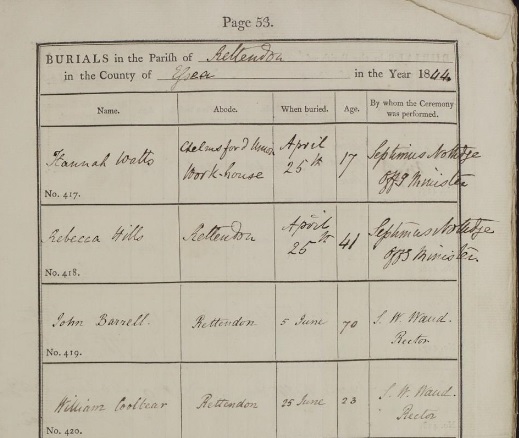 Page 53.
BURIALS in the Parish of Rettendon
in the County of Essex in the Year 1844
Name. Abode. When buried. Age. By whom the Ceremony was performed.
Hannah Watts
No. 417.
Chelmsford Union
Work-house
April
25th
17
Septimus Nottidge
Offg Minister
Rebecca Hills
No. 418.
Rettendon
April
25th
41
Septimus Nottidge
Offg Minister
John Barrell.
No. 419.
Rettendon
5 June
70
S. W. Waud.
Rector
William
No. 420.
Rettendon
25 June
23
S. W. Waud.
Rector